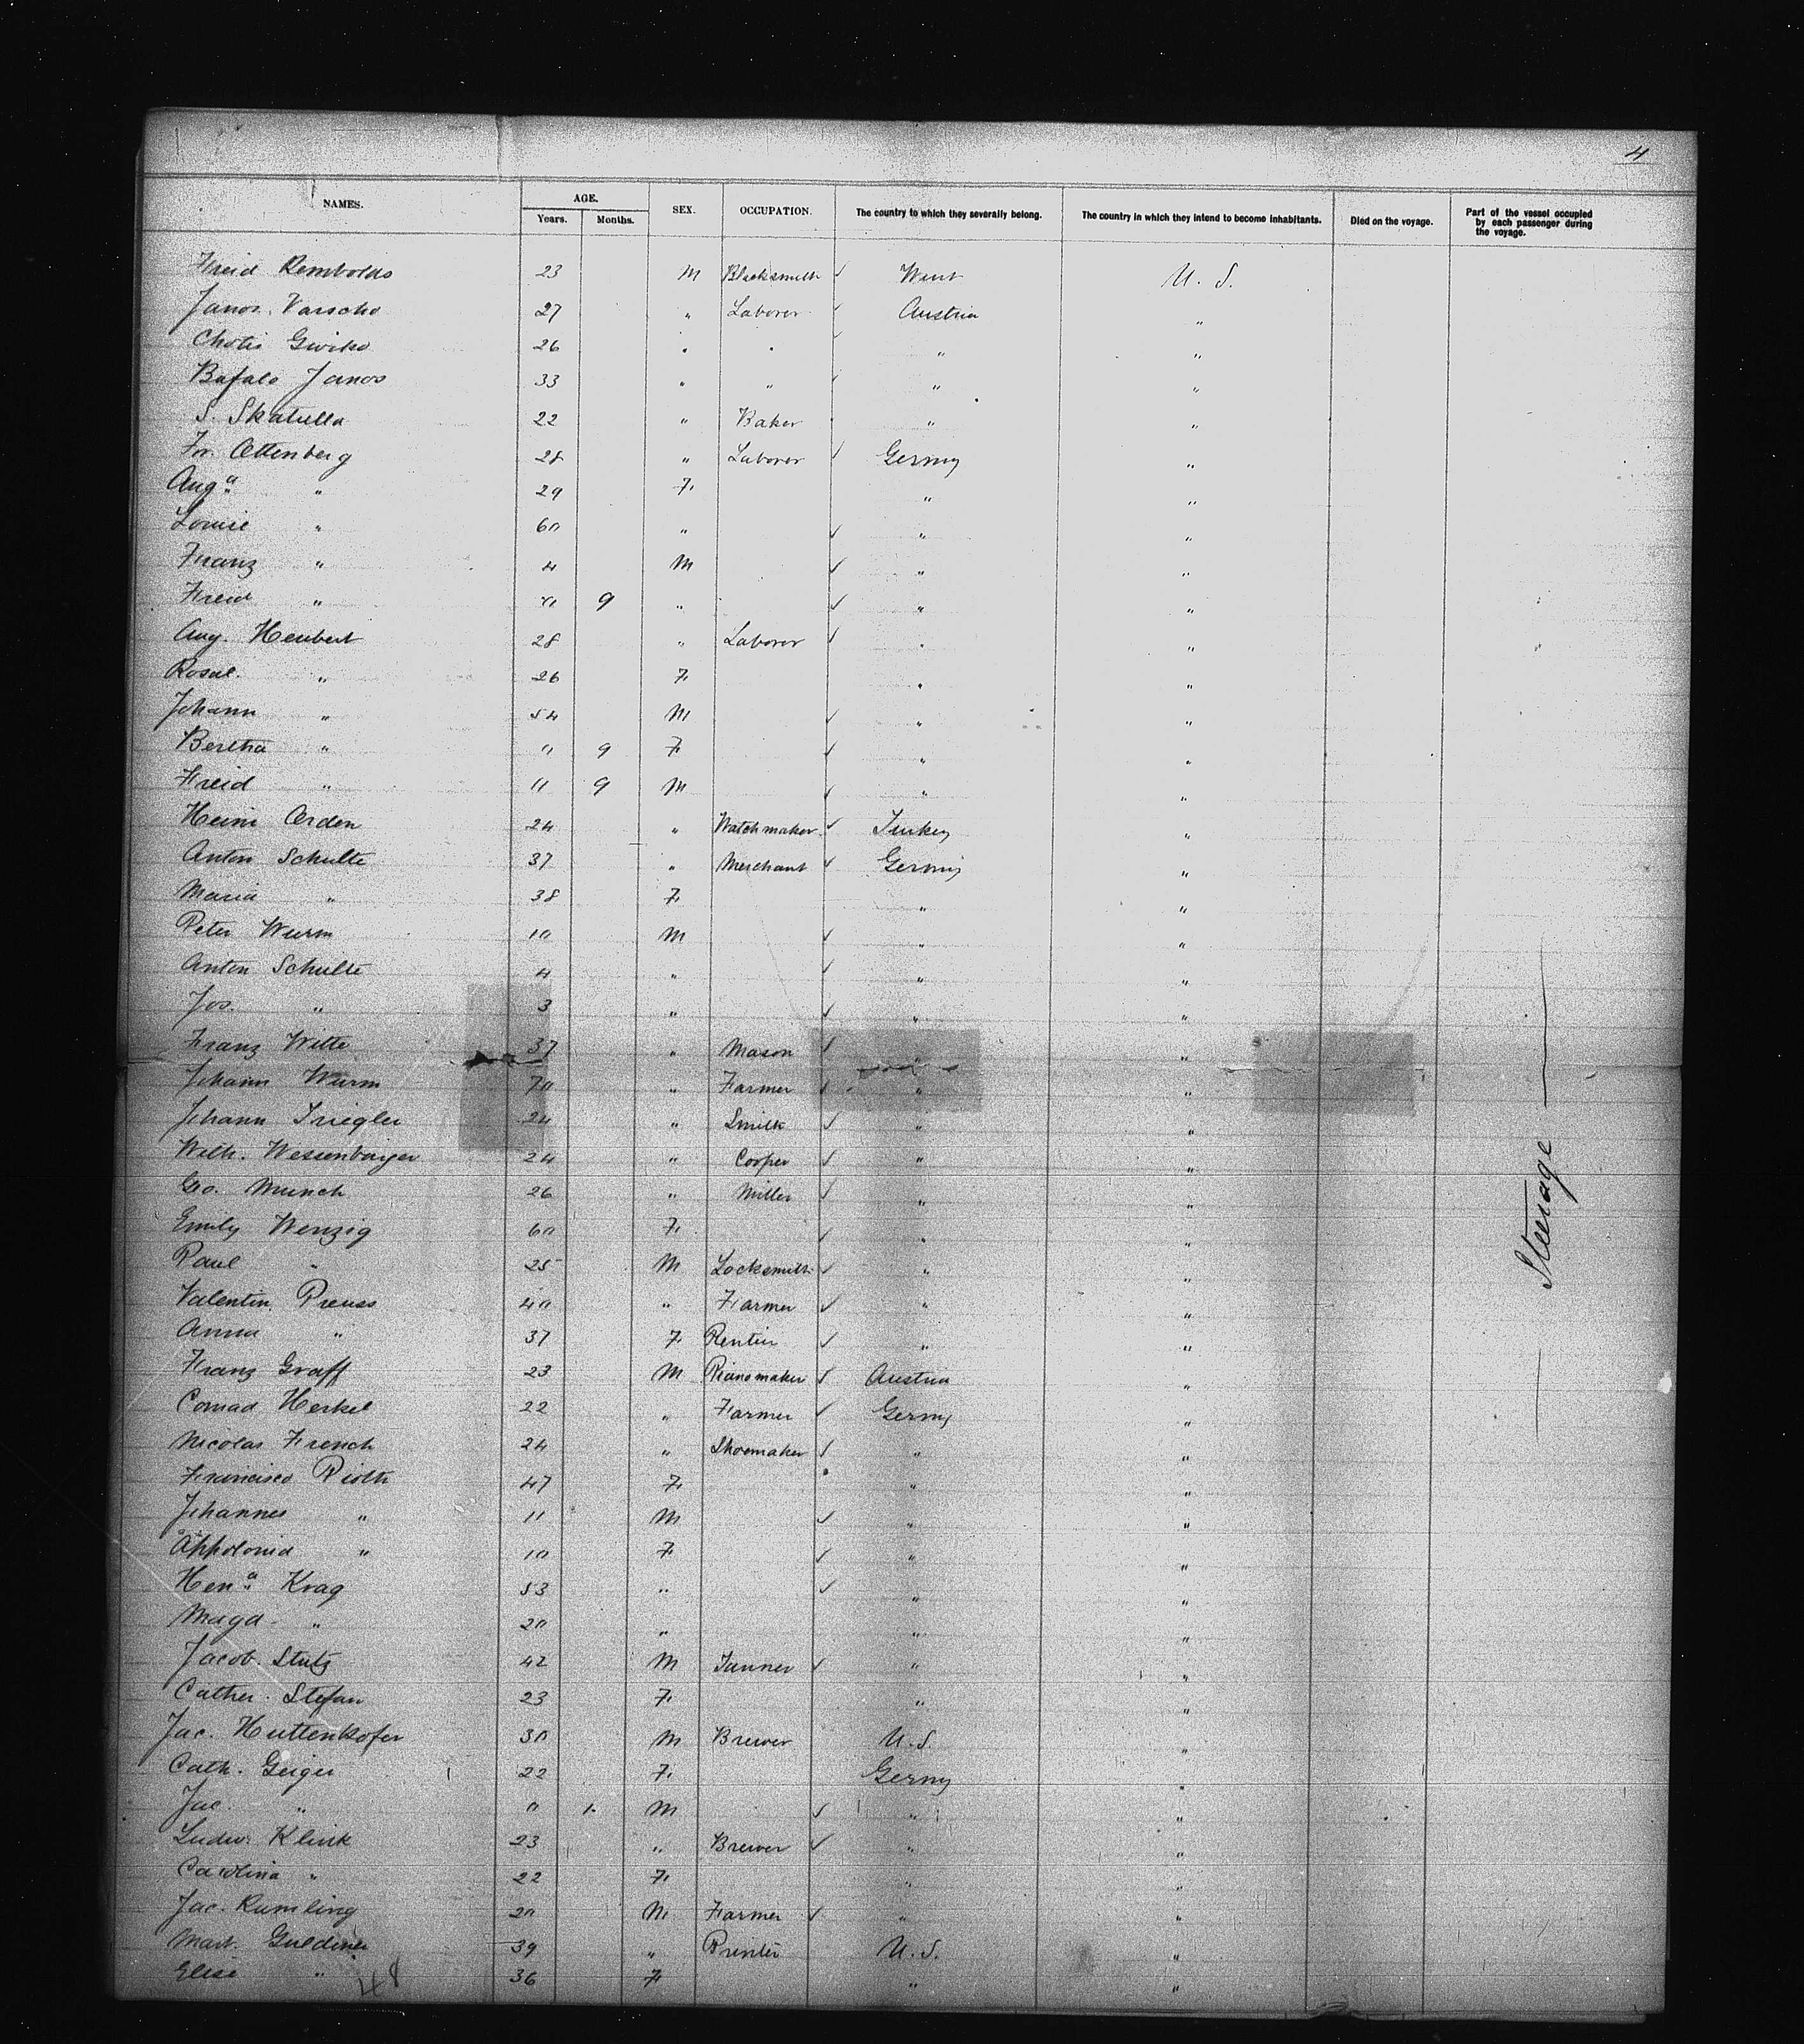 4
NAMES. AGE. SEX. OCCUPATION. The country to which they severally belong. The country in which they intend to become inhabitants. Died on the voyage. Part of the vessel occupied by each passenger during the voyage.
Years. Months.
Freid Rembolds 23 M Blacksmith ✓ U. S.
Janos Varscho 27 " Laborer ✓ Austria "
Chotis Gwiko 26 " " ✓ " "
Bafalo Janos 33 " " ✓ " "
S. Skatulla 22 " Baker " "
Fr. Ottenberg 28 " Laborer ✓ Germy "
Augᵃ " 29 F. " "
Louise " 60 " ✓ " "
Franz " 4 M ✓ " "
Freid " 0 9 " ✓ " "
Aug. Heubert 28 " Laborer ✓ " "
Rosal. " 26 F. " "
Johann " 54 M ✓ " "
Bertha " 0 9 F ✓ " "
Freid " 0 9 M ✓ " "
Heini Arden 24 " Watchmaker ✓ Turkey "
Anton Schulte 37 " Merchant ✓ Germy "
Maria " 38 F. " "
Peter Wurm 10 M ✓ " "
Anton Schulte 4 " ✓ " "
Jos. " 3 " ✓ " "
Franz Witte 37 " Mason ✓ " "
Johann Wurm 70 " Farmer ✓ " "
Johann Triegler 24 " Smith ✓ " "
Wilh. 24 " Cooper ✓ " "
Geo. Munch 26 " Miller ✓ " "
Emily Wenzig 60 F. ✓ " "
Paul " 25 M Locksmith ✓ " "
Valentin Preuss 40 " Farmer ✓ " "
Anna " 37 F. Rentier ✓ " "
Franz Graff 23 M Pianomaker ✓ Austria "
Conrad Herkel 22 " Farmer ✓ Germy "
Nicolas French 24 " Shoemaker ✓ " "
Francisco Rioth 47 F. " "
Johannes " 11 M ✓ " "
Appolonia " 10 F. ✓ " "
Henᵃ Krag 53 " ✓ " "
Magd. " 20 " " "
Jacob Stutz 42 M Tanner ✓ " "
Cather. Stefan 23 F. " "
Jac. Huttenkofer 30 M Brewer U. S. "
Cath. Geiger 22 F. Germy "
Jac. " 0 1. M ✓ " "
Ludw. Klink 23 " Brewer ✓ " "
Carolina " 22 F. " "
Jac. Rumling 20 M. Farmer ✓ " "
Mart. Guldener 39 " Printer U. S. "
Elise " 36 F " "
48
Steerage